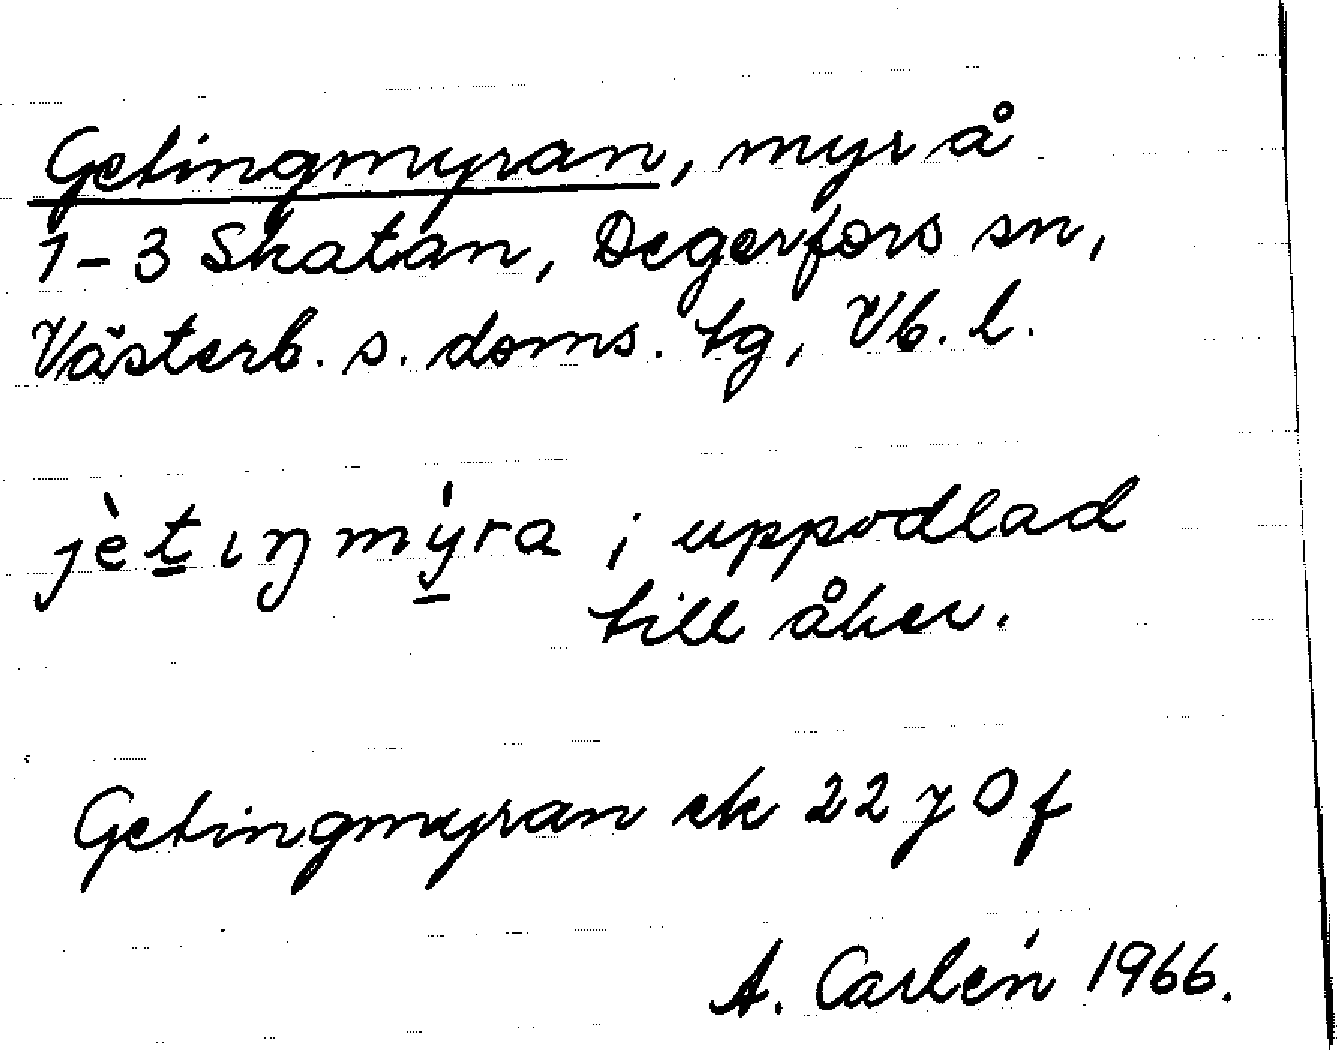 Getingmyran, myr å
1-3 Skatan, Degerfors sn,
Västerb. s. doms. tg, Vb. l.
jètıŋmýra ; uppodlad
till åker.
Getingmyran ek 22 7 0 f
A. Carlén 1966.